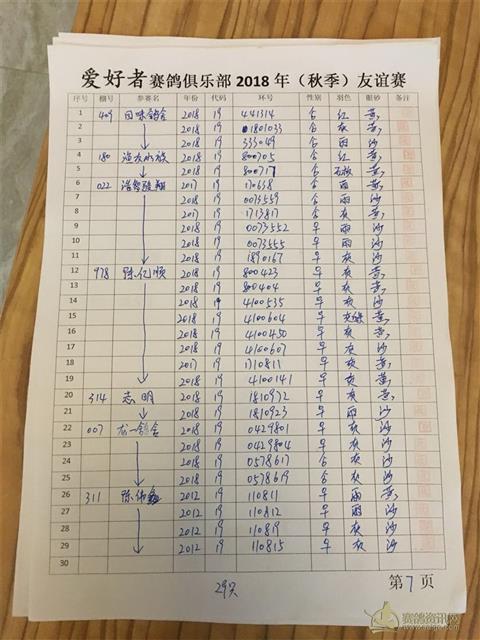 爱好者赛鸽俱乐部 2018 年（秋季）友谊赛
序号 棚号 参赛名 年份 代码 环号 性别 羽色 眼砂 备注
1 409 回味鸽舍 2018 19 441314 合 红 黄
2 2018 19 1801033 合 灰 黄
3 2018 19 333049 合 雨 沙
4 180 2018 19 800705 合 红 黄
5 2018 19 800717 合 沙
6 022 2017 19 170658 合 雨 黄
7 2018 19 0073559 合 雨 沙
8 2017 19 1713817 合 灰 黄
9 2018 19 0073552 早 雨 沙
10 2018 19 0073555 早 雨 沙
11 2018 19 1890167 早 灰 沙
12 978 陈亿顺 2018 19 800423 早 灰 黄
13 2018 19 800404 早 灰 黄
14 2018 19 4100535 早 灰 沙
15 2018 19 4100604 早 黄
16 2018 19 4100450 早 灰 黄
17 2018 19 4100607 早 灰 沙
18 2017 19 1710811 早 灰 黄
19 2018 19 4100141 早 灰 黄
20 314 志明 2018 19 1810972 早 灰 黄
21 2018 19 1810923 早 雨 沙
22 007 龙一鸽舍 2018 19 0429801 早 灰 沙
23 2018 19 0429804 早 灰 沙
24 2018 19 0578617 合 灰 沙
25 2018 19 0578619 合 灰 沙
26 311 2012 19 110811 早 雨 黄
27 2012 19 110812 早 雨 沙
28 2012 19 110819 早 灰 沙
29 2012 19 110815 早 灰 沙
30
29只
第7页
赛鸽资讯网